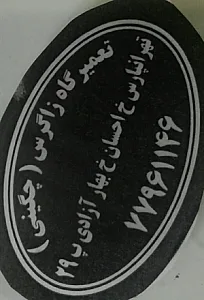 تعمیر گاه زاگرس (چگینی)
تهرانپارس خ احسان خ بهار آزادی پ ۲۹
۷۷۹۶۱۱۴۶